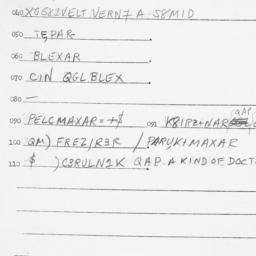 040 XOGK2VELT VERN7 A S8MID
050 TEPAR
060 BLEXAR
070 CIN QGLBLEX
080 —
090 PELCMAXAR = +$ 091 K8IPZ+NAR QAP
100 QM) FREZ,R3R / PARUK+MAXAR
110 $ )C3RULN2K QAP. A KIND OF DOCT